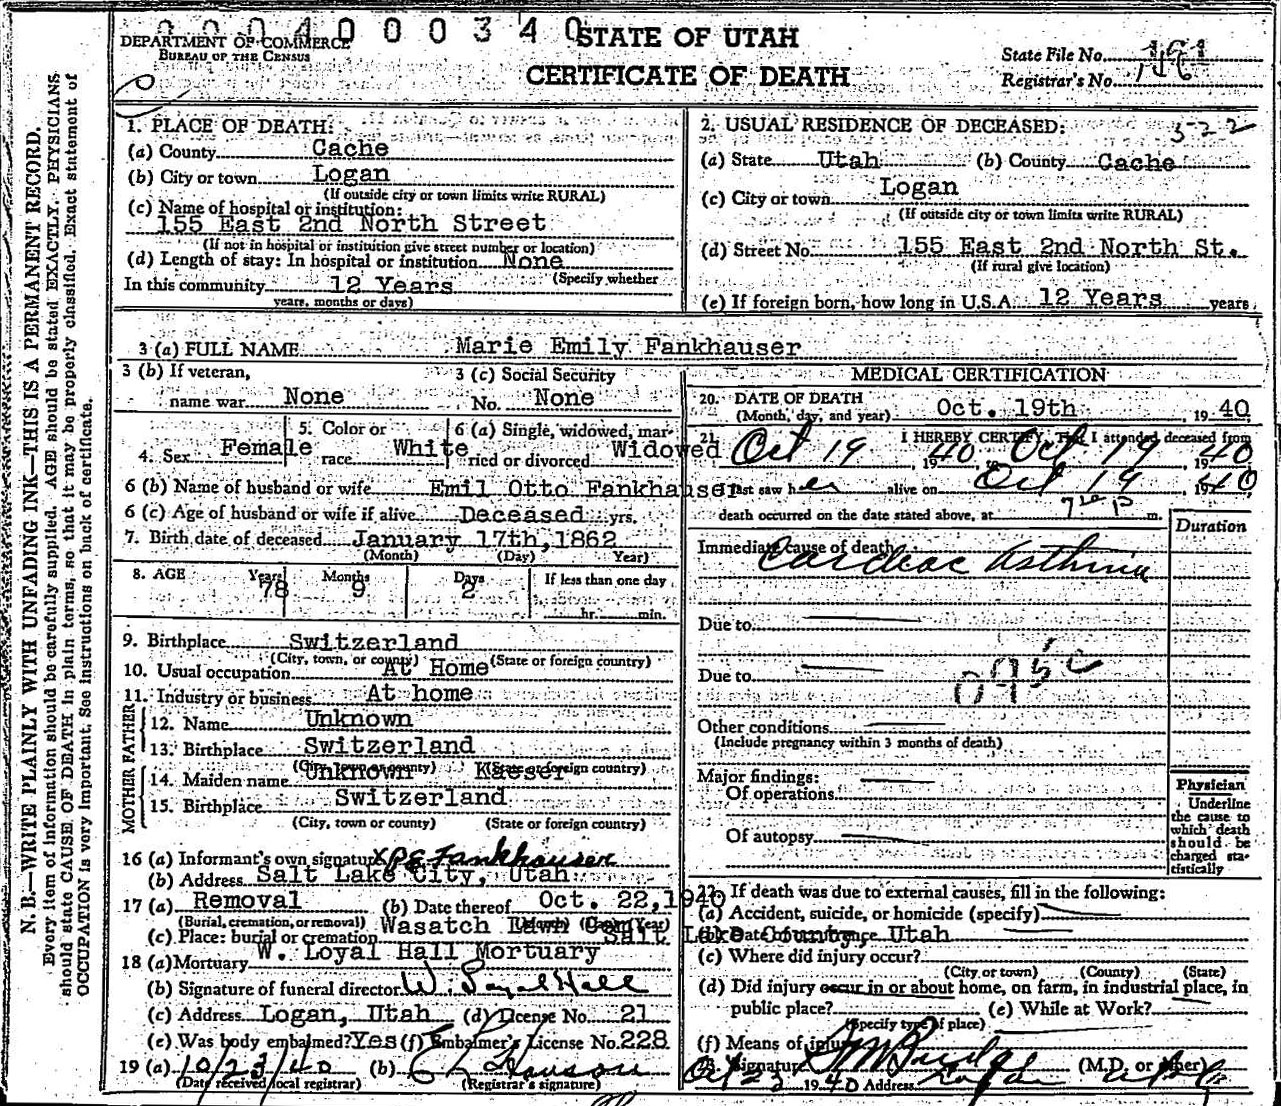 0004000340
STATE OF UTAH
CERTIFICATE OF DEATH
DEPARTMENT OF COMMERCE
BUREAU OF THE CENSUS
State File No.
Registrar's No.
N. B.—WRITE PLAINLY WITH UNFADING INK—THIS IS A PERMANENT RECORD.
Every item of information should be carefully supplied. AGE should be stated EXACTLY. PHYSICIANS
should state CAUSE OF DEATH in plain terms, so that it may be properly classified. Exact statement of
OCCUPATION is very important. See instructions on back of certificate.
1. PLACE OF DEATH:
(a) County Cache
(b) City or town Logan
(If outside city or town limits write RURAL)
(c) Name of hospital or institution:
155 East 2nd North Street
(If not in hospital or institution give street number or location)
(d) Length of stay: In hospital or institution None
(Specify whether
In this community 12 Years
years, months or days)
2. USUAL RESIDENCE OF DECEASED: 322
(a) State Utah (b) County Cache
(c) City or town Logan
(If outside city or town limits write RURAL)
(d) Street No. 155 East 2nd North St.
(If rural give location)
(e) If foreign born, how long in U.S.A. 12 Years years
3 (a) FULL NAME Marie Emily Fankhauser
3 (b) If veteran,
name war None
3 (c) Social Security
No. None
4. Sex Female
5. Color or
race White
6 (a) Single, widowed, mar-
ried or divorced Widowed
6 (b) Name of husband or wife Emil Otto Fankhauser
6 (c) Age of husband or wife if alive Deceased yrs.
7. Birth date of deceased January 17th, 1862
(Month) (Day) Year)
8. AGE Years Months Days If less than one day
78 9 2 hr. min.
9. Birthplace Switzerland
(City, town, or county) (State or foreign country)
10. Usual occupation At Home
11. Industry or business At home
FATHER
12. Name Unknown
13. Birthplace Switzerland
(City, town or county) (State or foreign country)
MOTHER
14. Maiden name Unknown Kaeser
15. Birthplace Switzerland
(City, town or county) (State or foreign country)
16 (a) Informant's own signature X P E Fankhauser
(b) Address Salt Lake City, Utah
17 (a) Removal (b) Date thereof Oct. 22, 1940
(Burial, cremation, or removal) (Month) (Day) (Year)
(c) Place: burial or cremation Wasatch Lawn Cem Salt Lake County, Utah
18 (a) Mortuary W. Loyal Hall Mortuary
(b) Signature of funeral director W. Loyal Hall
(c) Address Logan, Utah (d) License No. 21
(e) Was body embalmed? Yes (f) Embalmer's License No. 228
19 (a) 10/23/40 (b)
(Date received local registrar) (Registrar's signature)
MEDICAL CERTIFICATION
20. DATE OF DEATH
(Month, day, and year) Oct. 19th 1940
21. I HEREBY CERTIFY, That I attended deceased from
Oct 19, 1940 to Oct 19 1940
I last saw her alive on Oct 19 1940
death occurred on the date stated above, at m.
Duration
Immediate cause of death
Cardiac Asthma
Due to
Due to
095c
Other conditions
(Include pregnancy within 3 months of death)
Major findings:
Of operations
Of autopsy
Physician
Underline
the cause to
which death
should be
charged sta-
tistically
22. If death was due to external causes, fill in the following:
(a) Accident, suicide, or homicide (specify)
(b) Date of occurrence
(c) Where did injury occur?
(City or town) (County) (State)
(d) Did injury occur in or about home, on farm, in industrial place, in
public place? (e) While at Work?
(Specify type of place)
(f) Means of injury
23. Signature (M.D. or other)
Oct 23 1940 Address Logan